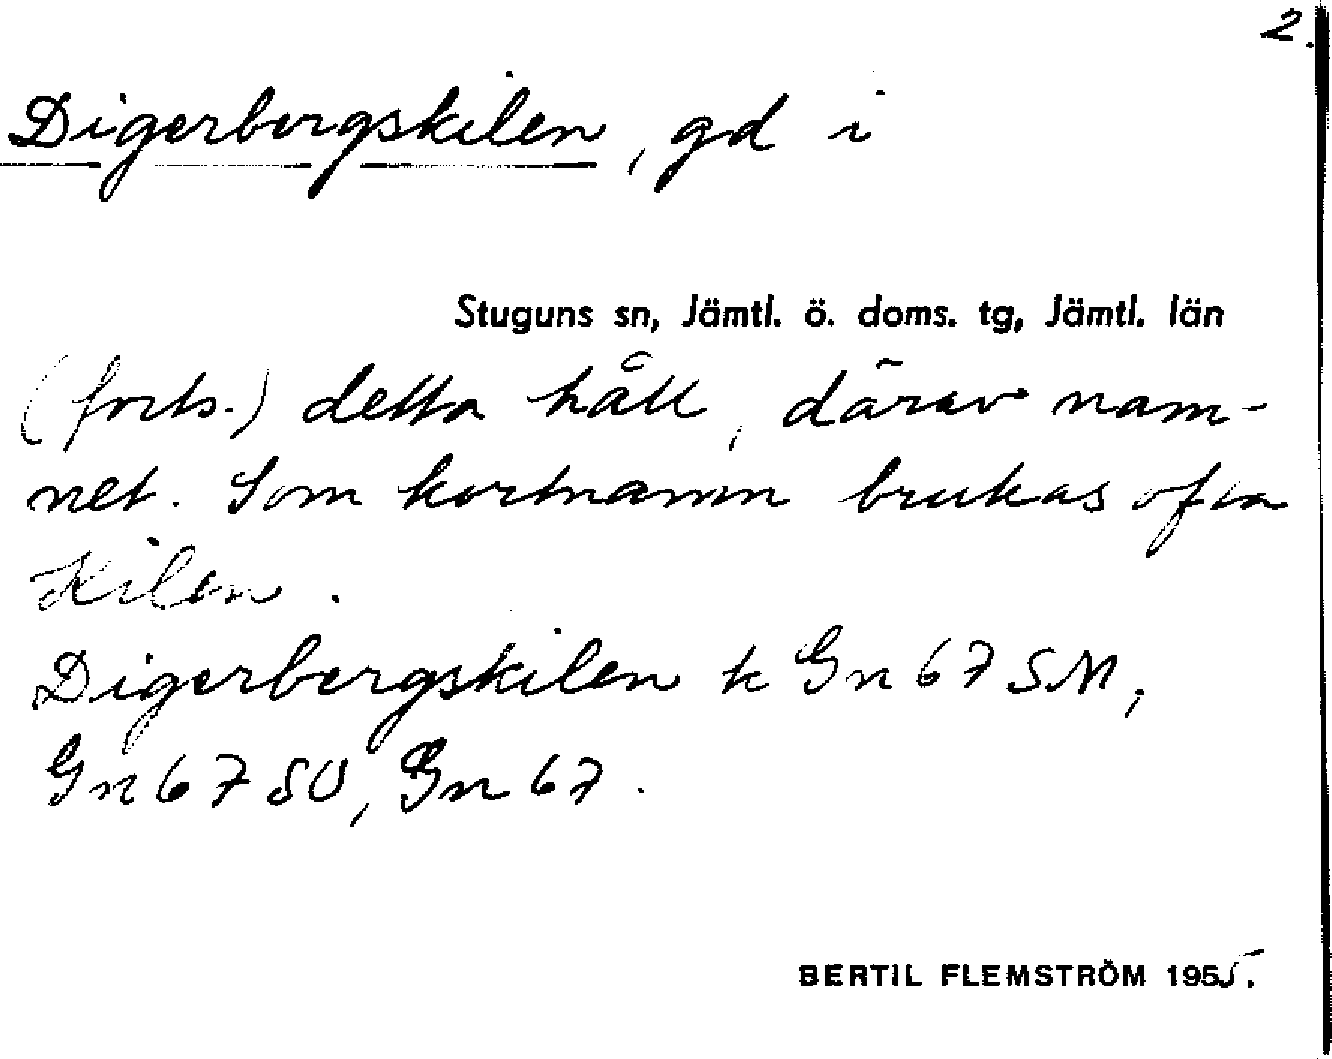 2.
Digerbergskilen, gd i
Stuguns sn, Jämtl. ö. doms. tg, Jämtl. län
(forts.) detta håll, därav nam-
net. Som kortnamn brukas ofta
Kilen.
Digerbergskilen k Gn 67 SM,
Gn 67 SO, Gn 67.
BERTIL FLEMSTRÖM 1955.